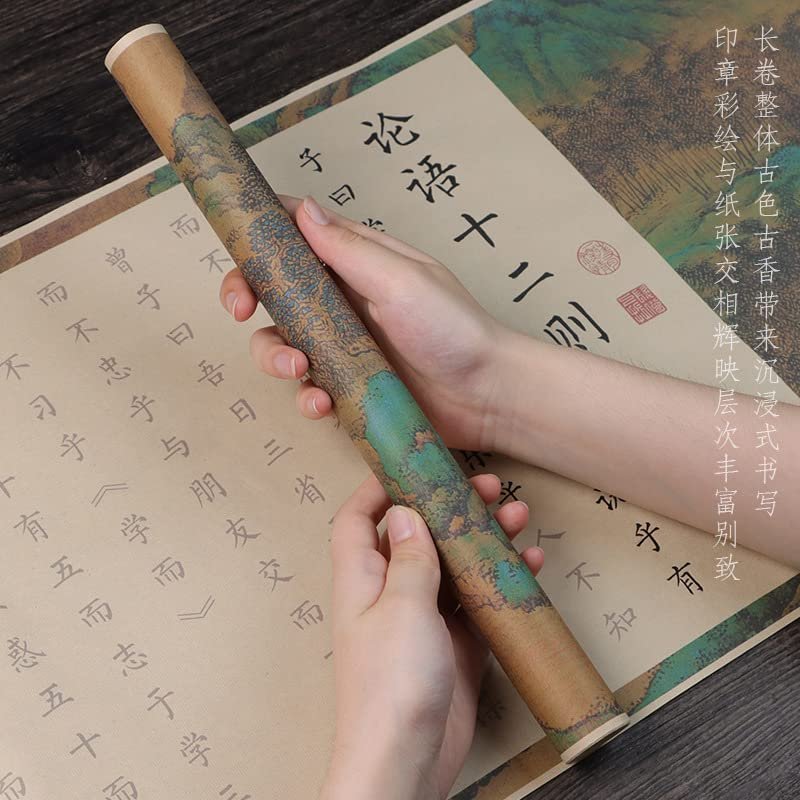 长卷整体古色古香带来沉浸式书写
印章彩绘与纸张交相辉映层次丰富别致
论语十二则
子曰学 说乎有
乐乎人不知
而不
曾子曰吾日三省
而不忠乎与朋友交而
不习乎《学而》
十有五而志于学
惑五十而